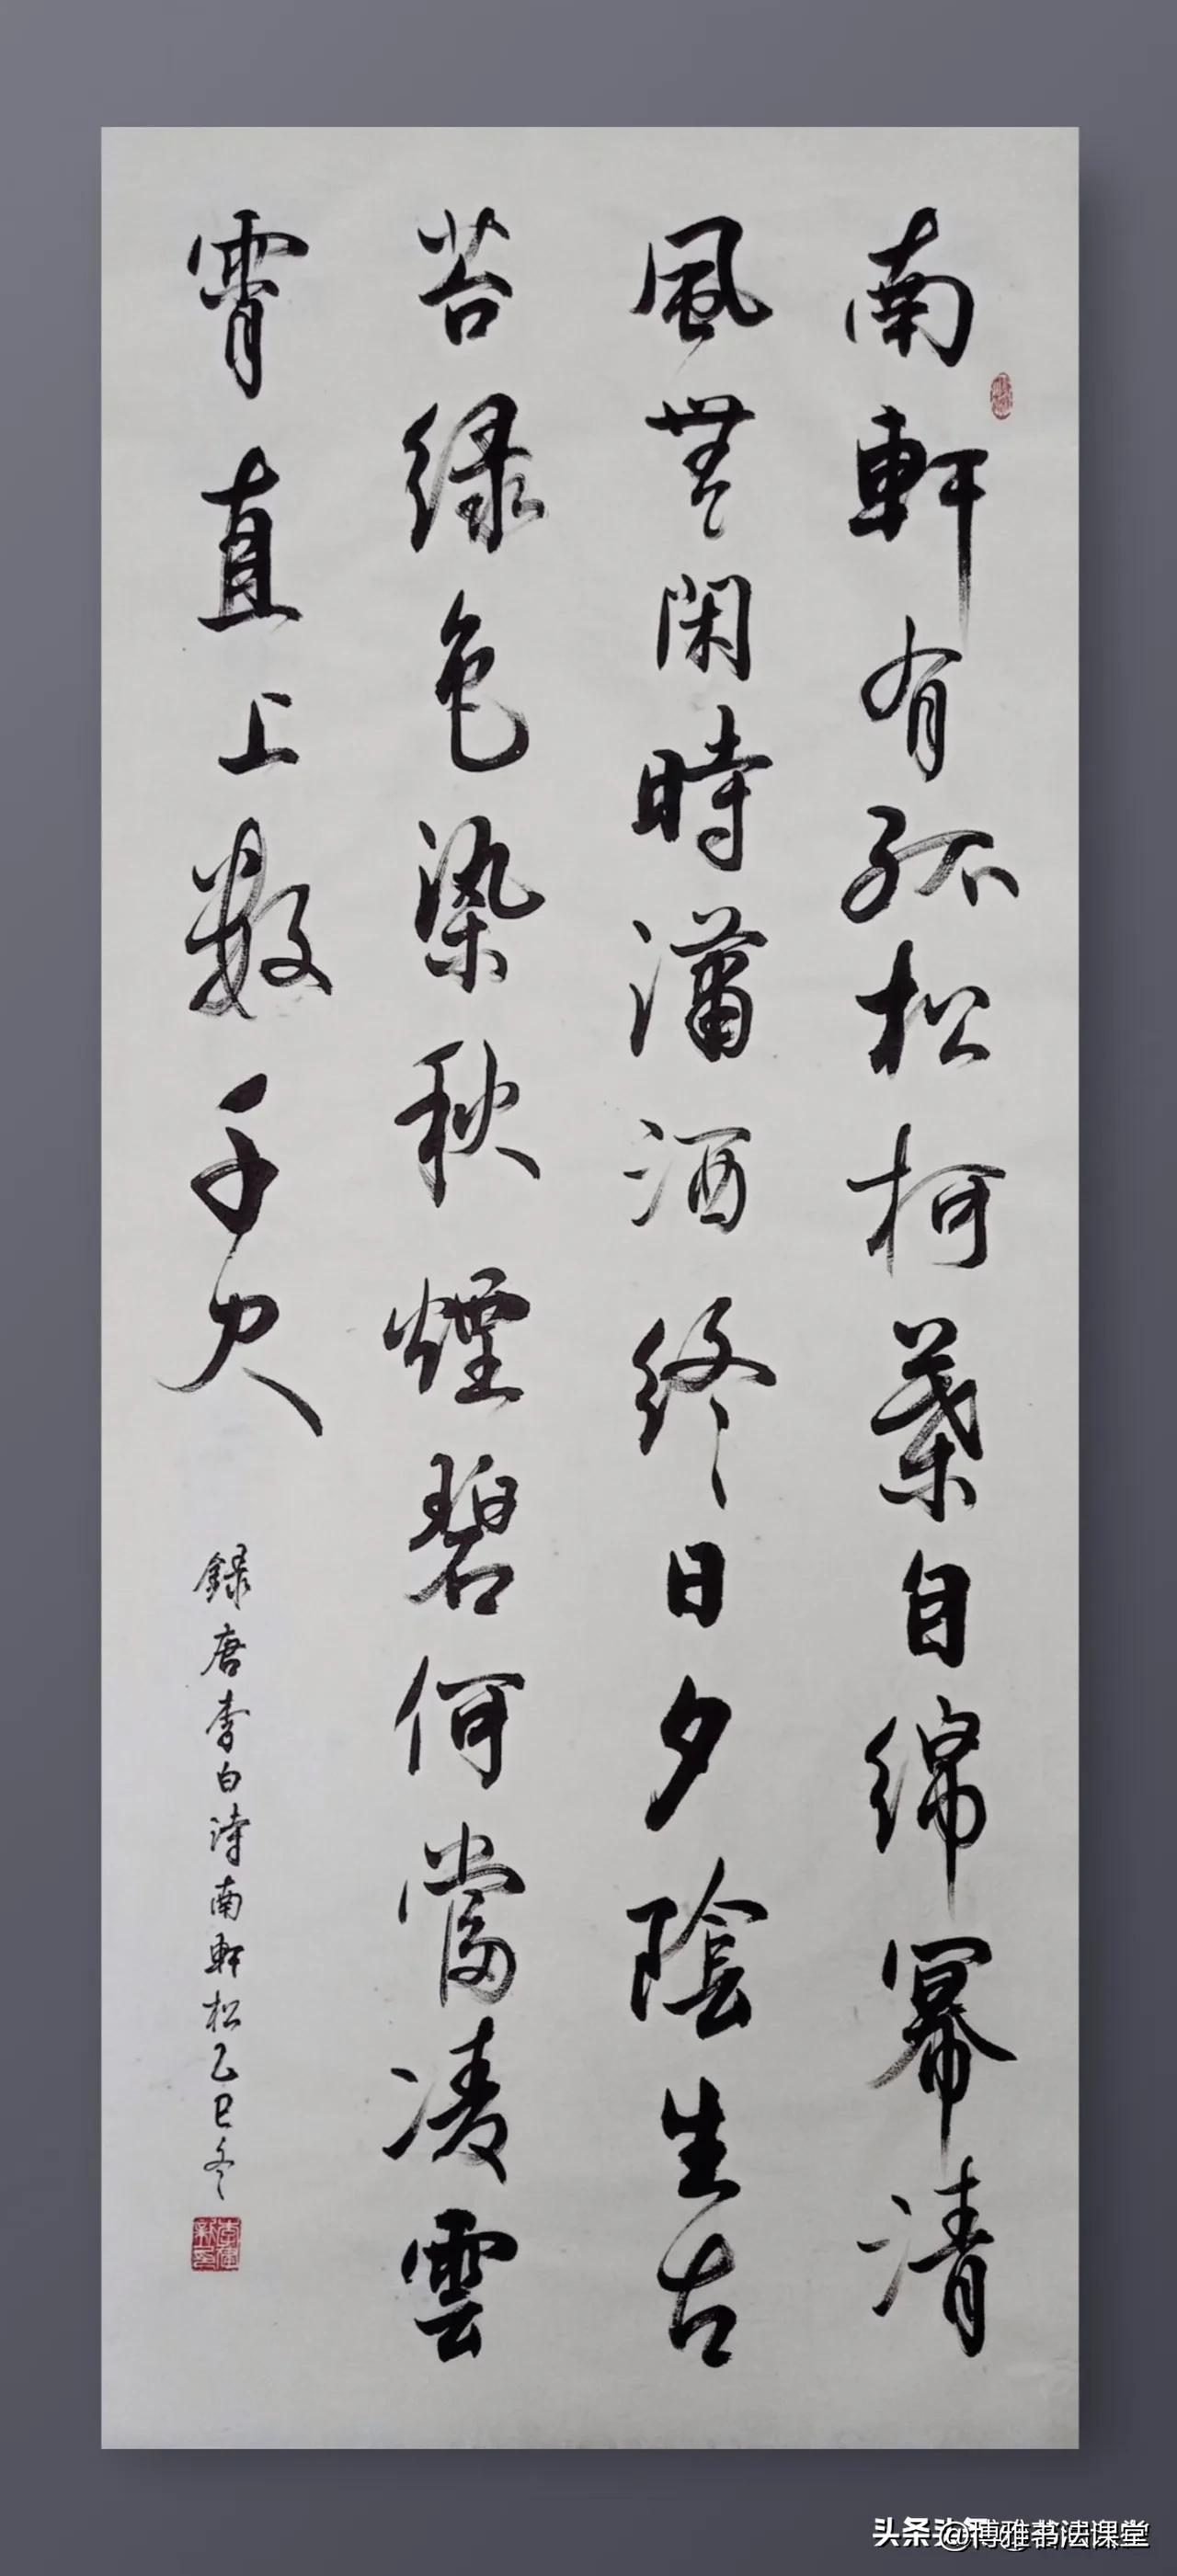 南軒有孤松柯葉自綿冪清
風無閑時瀟洒終日夕陰生古
苔緑色染秋煙碧何當凌雲
霄直上數千尺
錄唐李白詩南軒松乙巳冬
头条 @博雅书法课堂